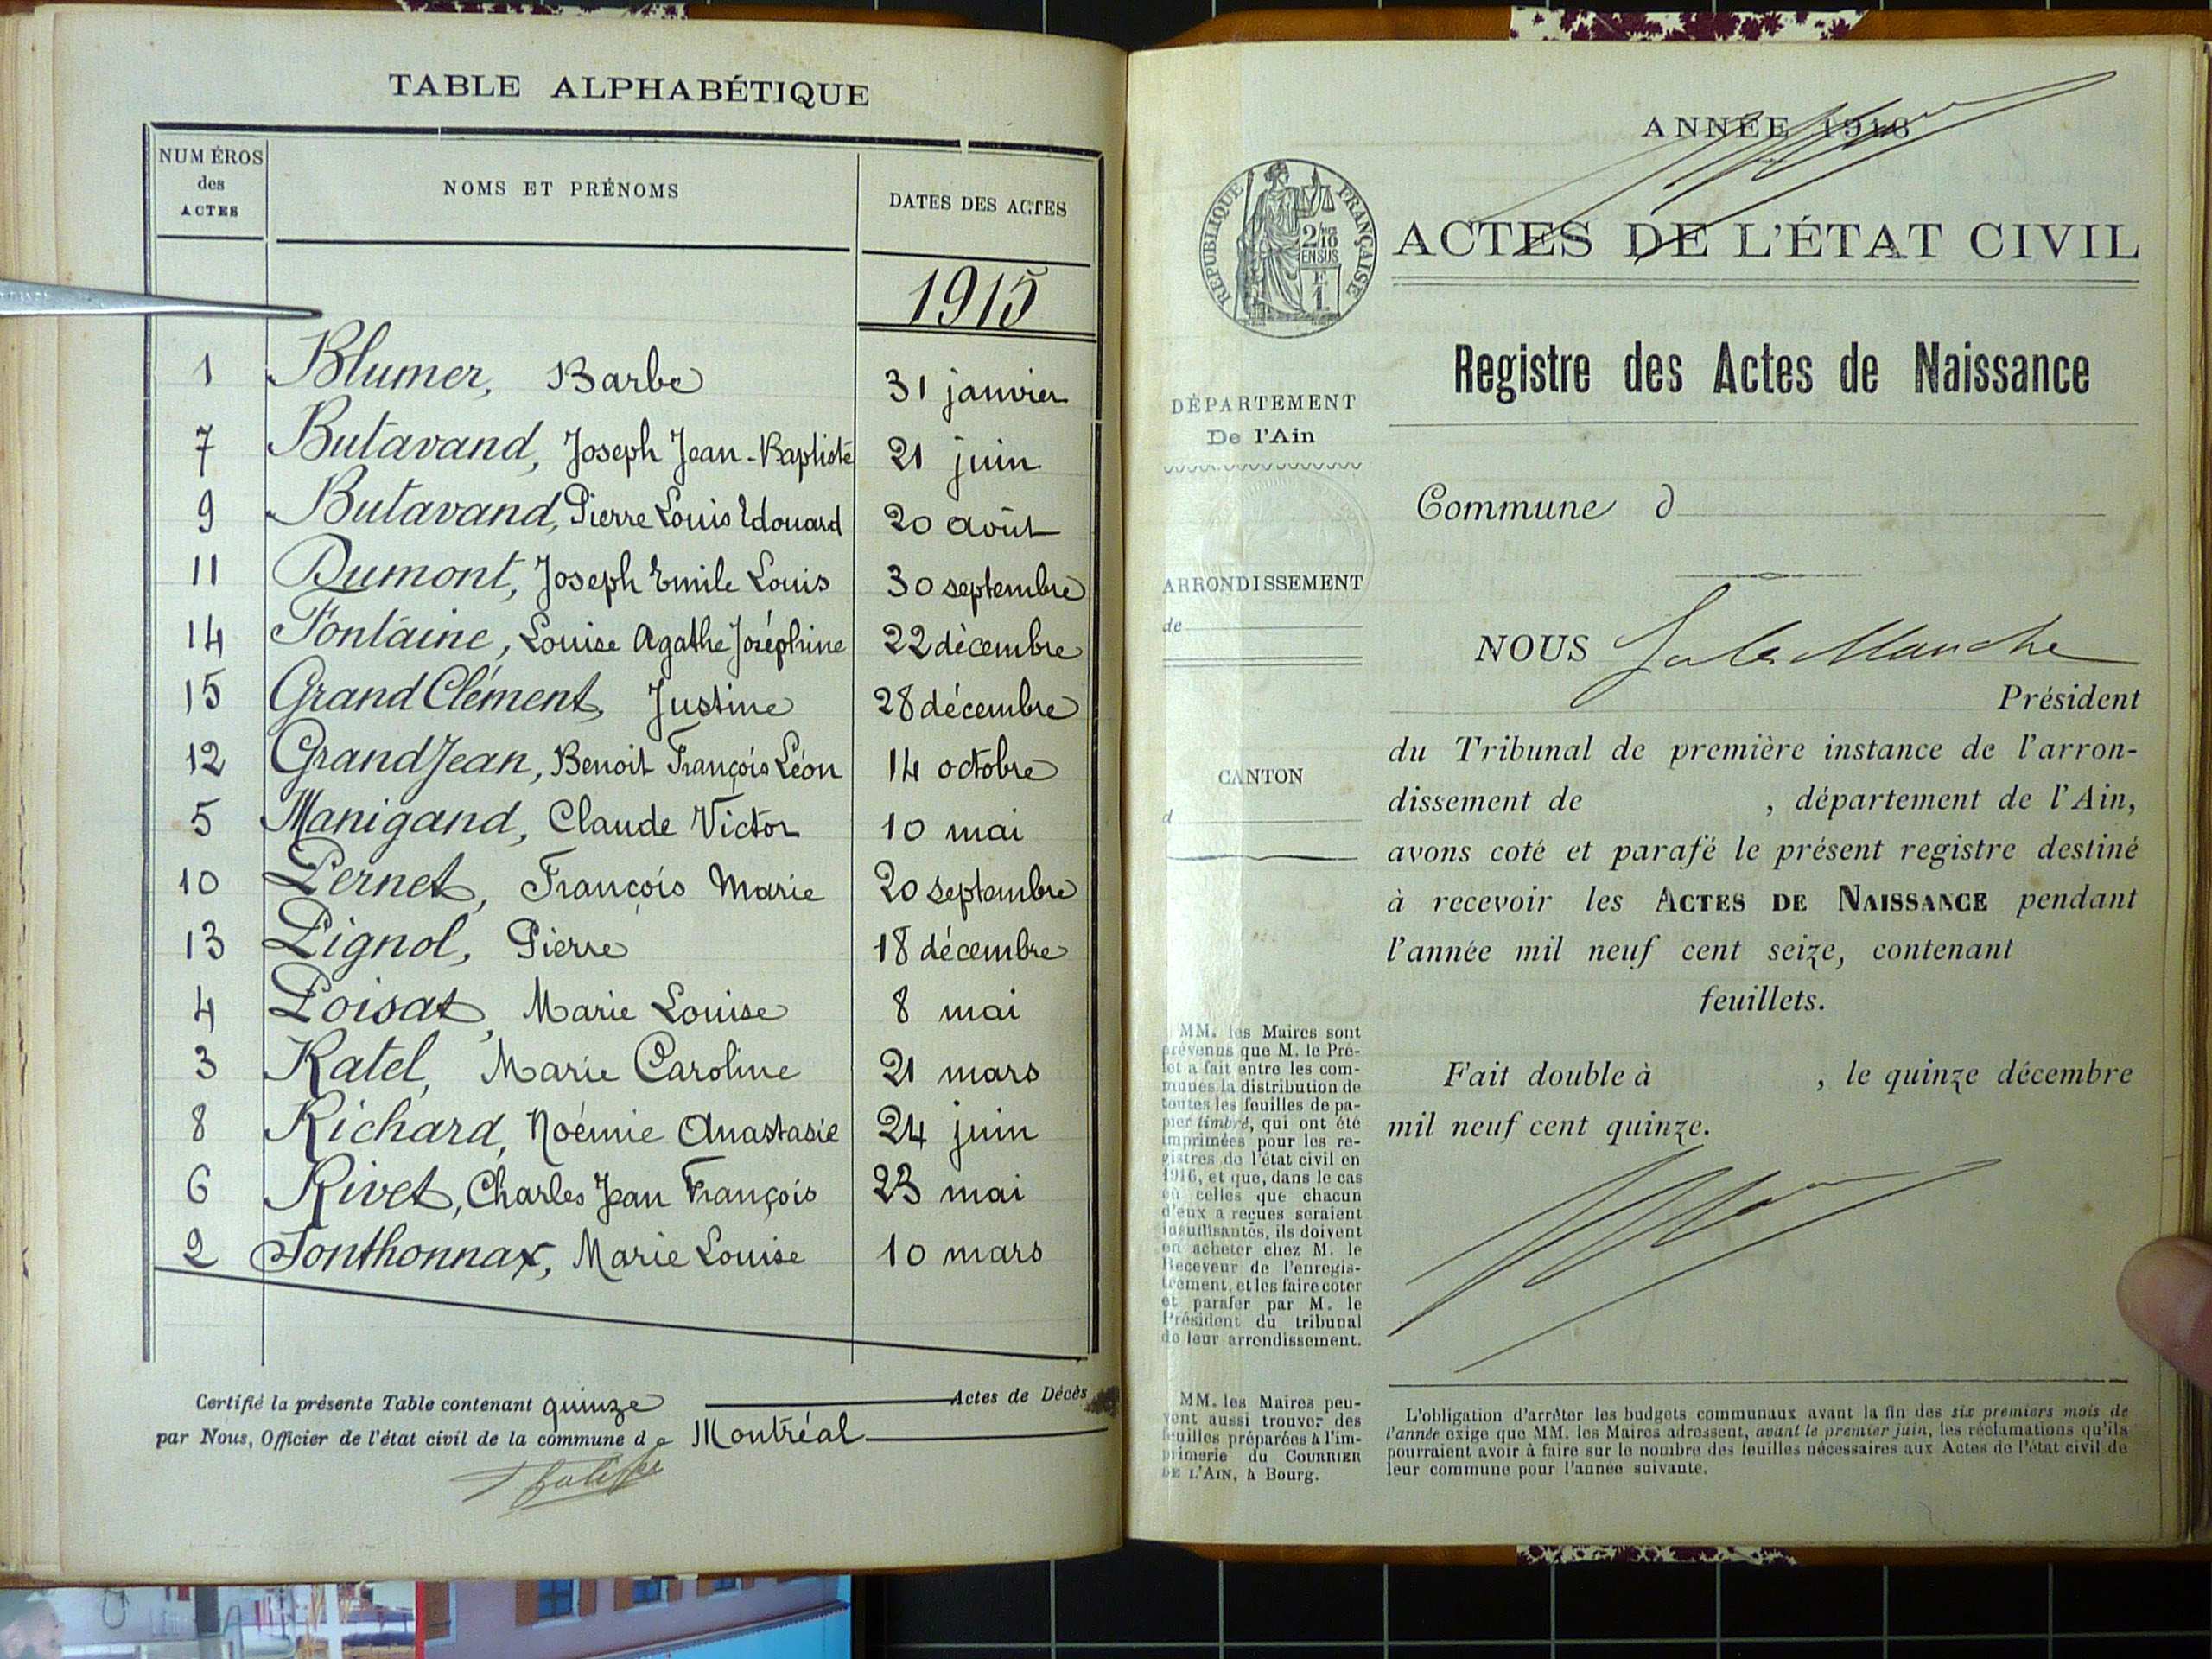 TABLE ALPHABÉTIQUE
NUMÉROS
des
ACTES
NOMS ET PRÉNOMS
DATES DES ACTES
1915
1 Blumer, Barbe 31 janvier
7 Butavand, Joseph Jean-Baptiste 21 juin
9 Butavand, Pierre Louis Edouard 20 août
11 Dumont, Joseph Emile Louis 30 septembre
14 Fontaine, Louise Agathe Joséphine 22 décembre
15 Grand Clément, Justine 28 décembre
12 Grandjean, Benoit François Léon 14 octobre
5 Manigand, Claude Victor 10 mai
10 Pernet, François Marie 20 septembre
13 Pignol, Pierre 18 décembre
4 Poisat, Marie Louise 8 mai
3 Ratel, Marie Caroline 21 mars
8 Richard, Noémie Anastasie 24 juin
6 Rivet, Charles Jean François 23 mai
2 Sonthonnax, Marie Louise 10 mars
Certifié la présente Table contenant quinze Actes de Décès
par Nous, Officier de l'état civil de la commune de Montréal
ANNÉE 1916
RÉPUBLIQUE FRANÇAISE
2/10
EN SUS
E
1
ACTES DE L'ÉTAT CIVIL
Registre des Actes de Naissance
DÉPARTEMENT
De l'Ain
Commune d
ARRONDISSEMENT
de
NOUS Jules Manche
Président
du Tribunal de première instance de l'arron-
dissement de , département de l'Ain,
avons coté et parafé le présent registre destiné
à recevoir les ACTES DE NAISSANCE pendant
l'année mil neuf cent seize, contenant
feuillets.
CANTON
d
Fait double à , le quinze décembre
mil neuf cent quinze.
MM. les Maires sont
prévenus que M. le Pré-
fet a fait entre les com-
munes la distribution de
toutes les feuilles de pa-
pier timbré, qui ont été
imprimées pour les re-
gistres de l'état civil en
1916, et que, dans le cas
où celles que chacun
d'eux a reçues seraient
insuffisantes, ils doivent
en acheter chez M. le
Receveur de l'enregis-
trement, et les faire coter
et parafer par M. le
Président du tribunal
de leur arrondissement.
MM. les Maires peu-
vent aussi trouver des
feuilles préparées à l'im-
primerie du COURRIER
DE L'AIN, à Bourg.
L'obligation d'arrêter les budgets communaux avant la fin des six premiers mois de
l'année exige que MM. les Maires adressent, avant le premier juin, les réclamations qu'ils
pourraient avoir à faire sur le nombre des feuilles nécessaires aux Actes de l'état civil de
leur commune pour l'année suivante.